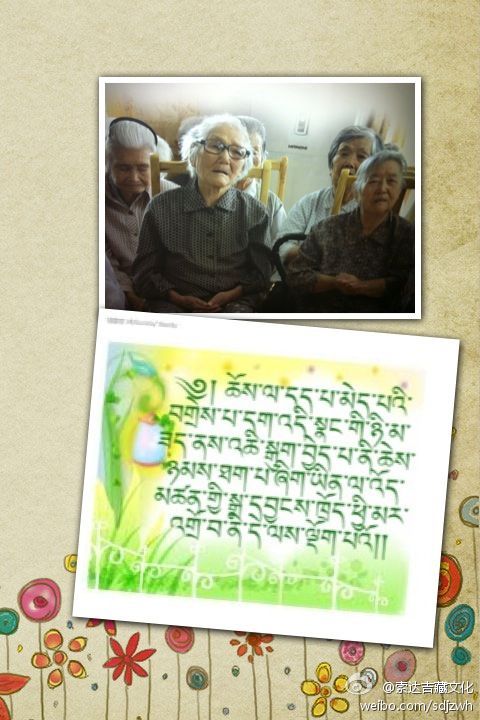 ༄༅། ཆོས་ལ་དད་པ་མེད་པའི་
བགྲེས་པ་དག་འདི་སྣང་གི་ཉི་མ་
ཟད་ནས་འཆི་སྒུག་བྱེད་པ་ནི་ཆེས་
ཉམས་ཐག་པ་ཞིག་ཡིན་ལ་འོད་
མཚན་གྱི་སྒྲ་དབྱངས་ཁྲོད་ཕྱི་མར་
འགྲོ་བ་ནི་དེ་ལས་ལྡོག་པའོ།།
@索达吉藏文化
weibo.com/sdjzwh